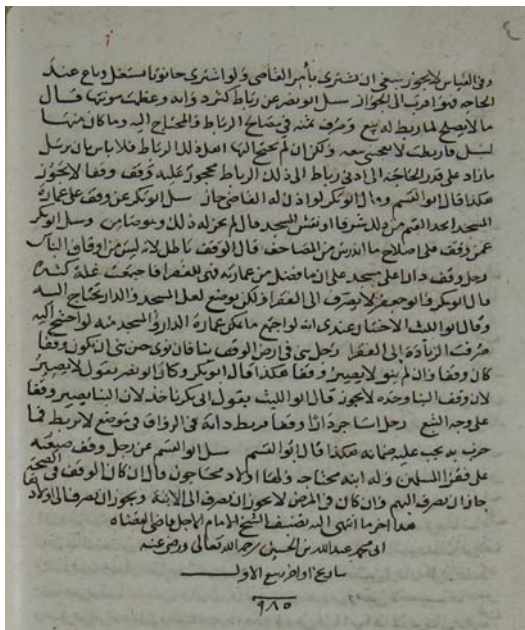 وفي القياس لا يجوز ينبغي ان يشترى بأمر القاضي ولو اشترى حانوتا مستغل وباع عند
الحاجة فهو اقرب الى الجواز سئل ابو نصر عن رباط كثر دوابه وعظمت مونتها قال
ما لا يصلح لما ربط له يبيع وصرف ثمنه في مصالح الرباط والمحتاج اليه وما كان منها
ولكن ان لم يحتج اليها اهل ذلك الرباط فلا باس بان يرسل
ما زاد على قدر الحاجة الى ادنى رباط الى ذلك الرباط محجور عليه وقف وقفا لا يجوز
هكذا قال ابو القسم وقال ابو بكر لو اذن له القاضي جاز سئل ابو بكر عن وقف على عمارة
المسجد اتخذ القيم من ذلك شرفا او نقش المسجد قال لم يجز له ذلك وهو ضامن وسئل ابو بكر
عمن وقف على اصلاح ما اندرس من المصاحف قال الوقف باطل لانه ليس من اوقاف الناس
رجل وقف دارا على مسجد على ان ما فضل من عمارته فهي للفقرا فاجتمعت غلة كثيرة
قال ابو بكر وابو جعفر لا يصرف الى الفقرا ولكن يوضع لعل المسجد والدار يحتاج اليه
وقال ابو الليث الاختيار عندي انه لو اجتمع ما يمكن عمارة الدار والمسجد منه لو احتيج اليه
صرفت الزيادة الى الفقرا رجل بنى في ارض الوقف بنا فان نوى حين بنى ان يكون وقفا
كان وقفا وان لم ينو لا يصير وقفا هكذا قال ابو بكر وكان ابو نصر يقول لا يصير
لان وقف البنا وحده لا يجوز قال ابو الليث بقول ابي بكر ناخذ لان البنا يصير وقفا
على وجه التبع رجل استاجر دارا وقفا فربط دابة في الرواق في موضع لا يربط فيها
خرب به يجب عليه ضمانه هكذا قال ابو القسم سئل ابو القسم عن رجل وقف ضيعته
على فقرا المسلمين وله ابنه محتاجه ولها اولاد محتاجون قال ان كان الوقف في الصحة
جاز ان يصرف اليهم وان كان في المرض لا يجوز ان يصرف الى الابنة ويجوز ان يصرف الى اولاد
هذا اخر ما انتهى اليه تصنيف الشيخ الامام الاجل قاضي القضاه
ابي محمد عبدالله بن الحسين رحمه الله تعالى ورضي عنه
بتاريخ اواخر ربيع الاول
٩٨٥